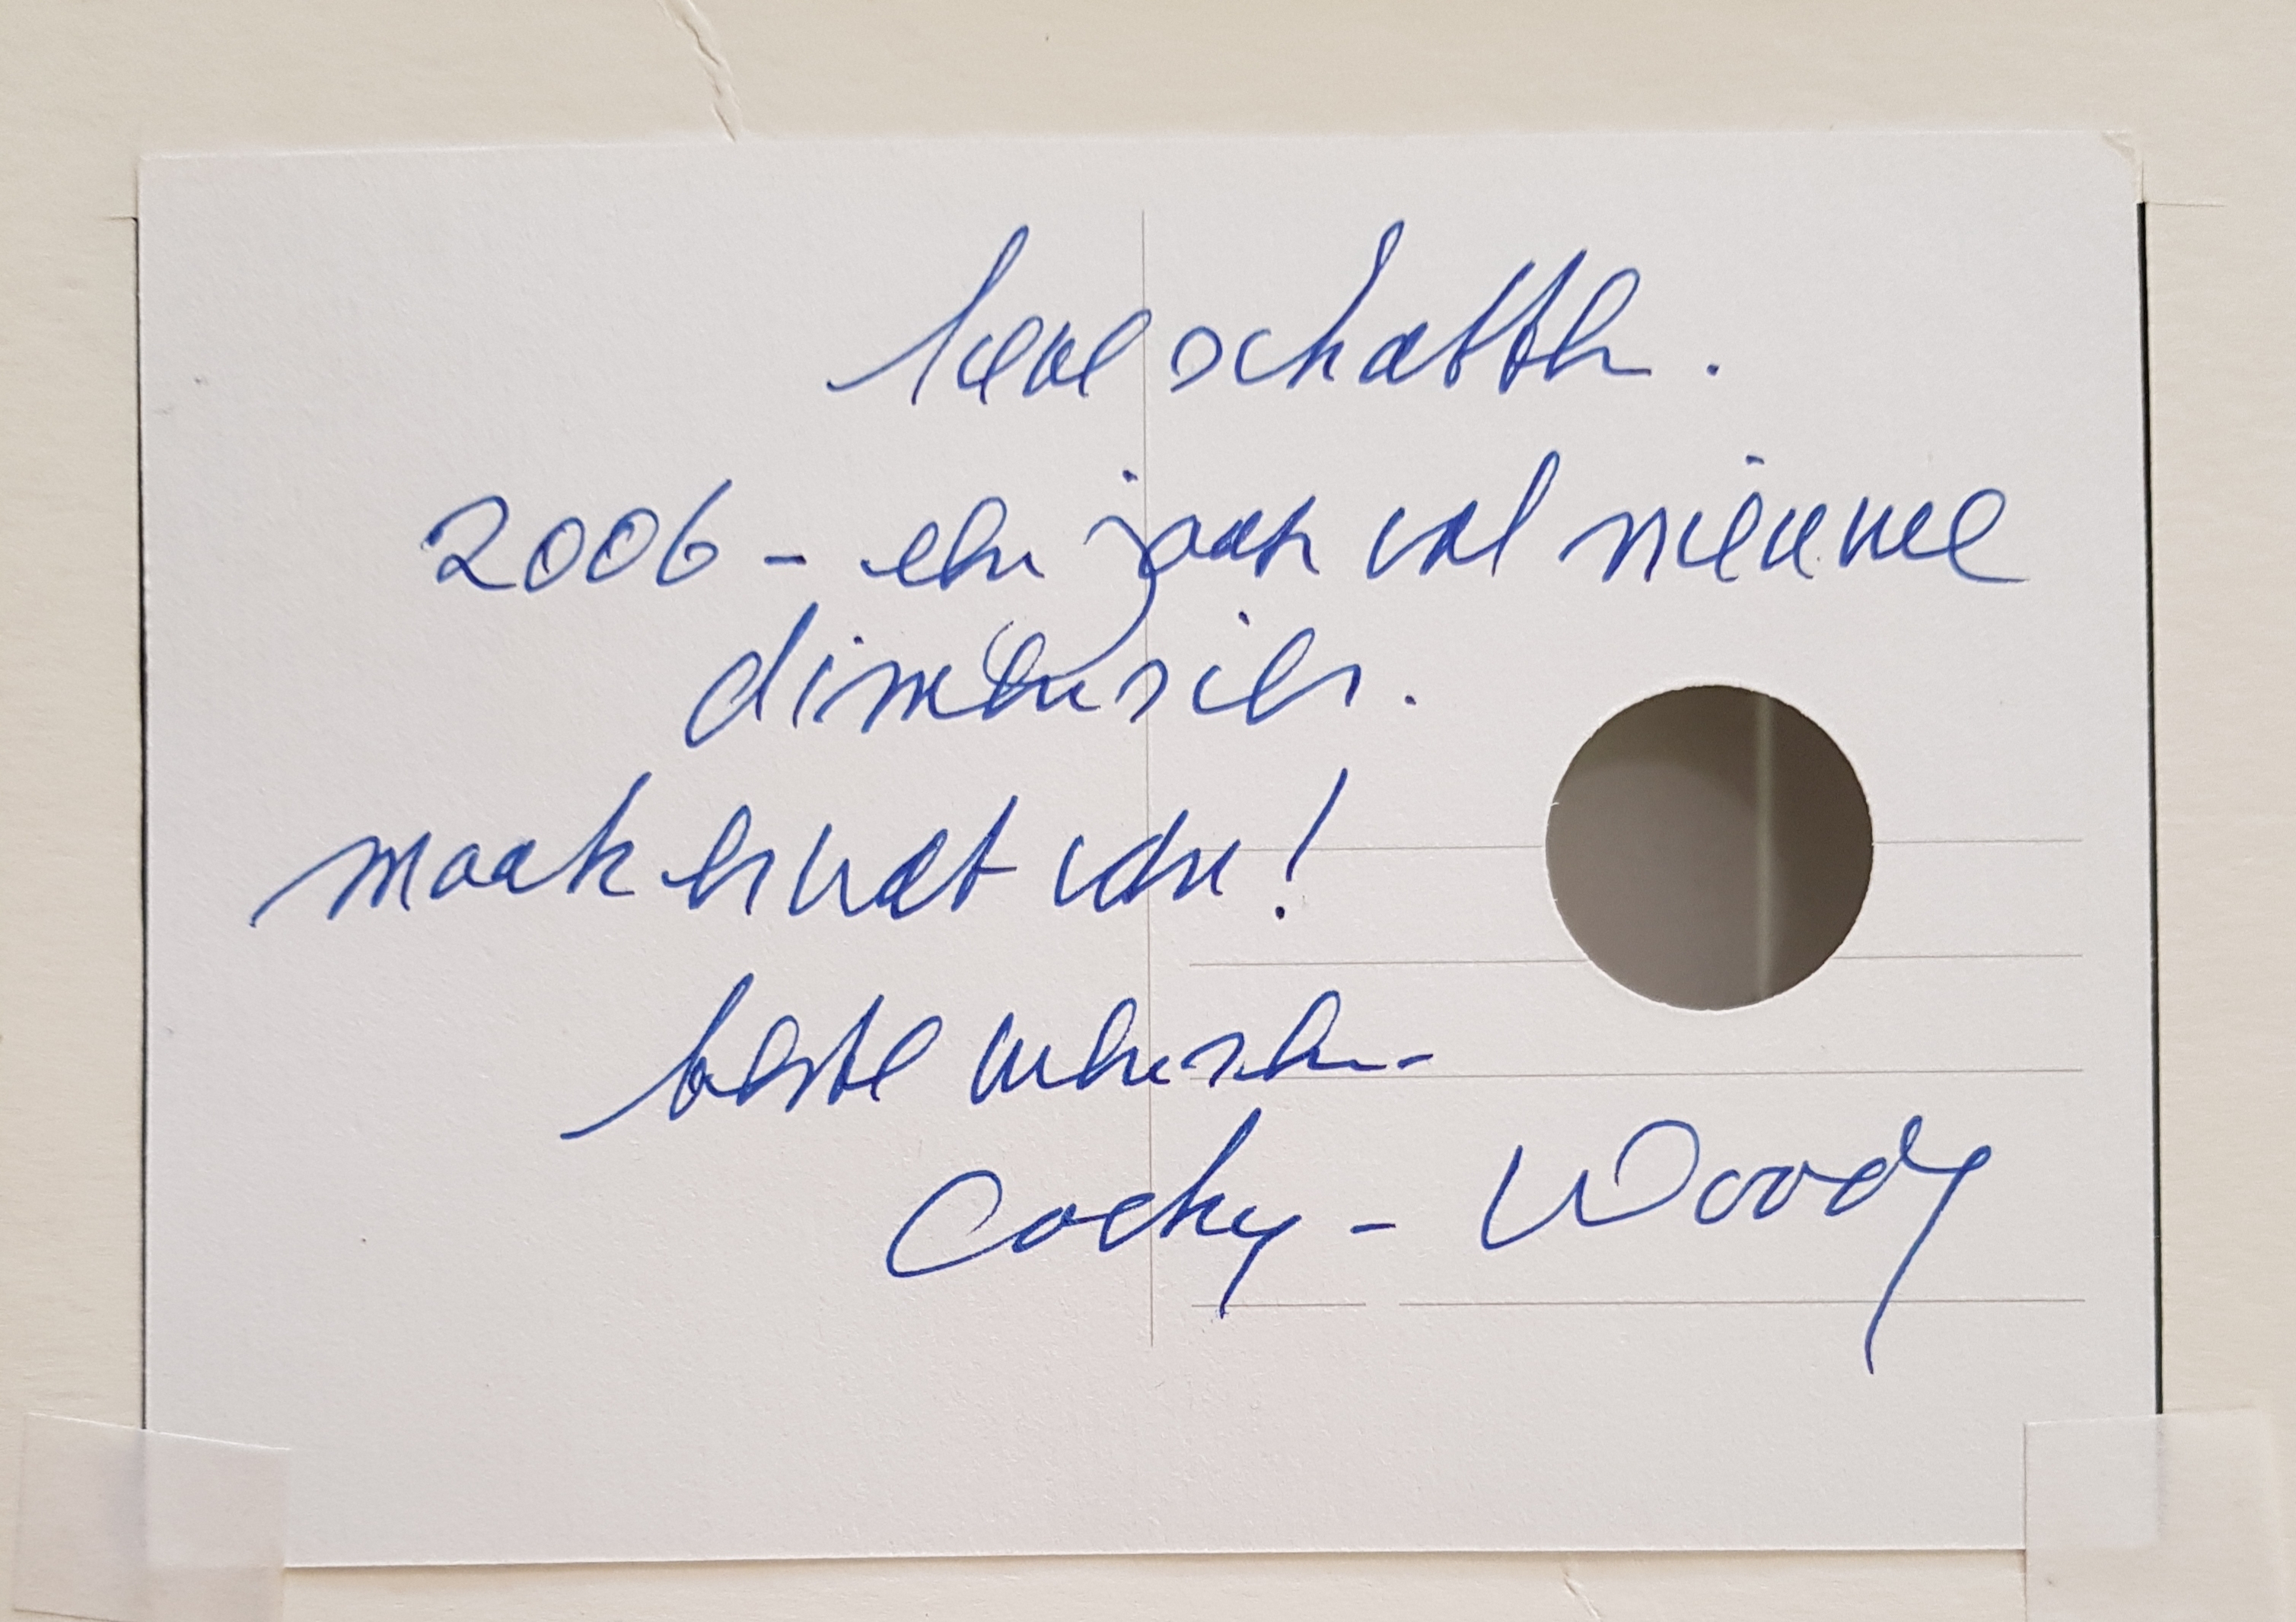 lieve schatten.
2006 - een jaar vol nieuwe
dimensies.
maak er wat van!
beste wensen -
Cocky - Woody